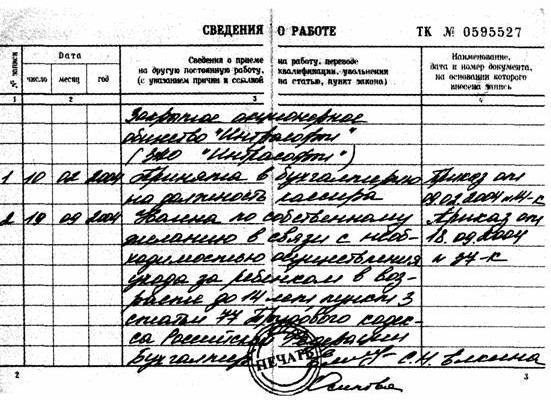 СВЕДЕНИЯ О РАБОТЕ ТК № 0595527
№ записи
Дата
число месяц год
Сведения о приеме на работу, переводе
на другую постоянную работу, квалификации, увольнении
(с указанием причин и ссылкой на статью, пункт закона)
Наименование,
дата и номер документа,
на основании которого
внесена запись
1 2 3 4
Закрытое акционерное
общество "Интраспорт"
(ЗАО "Интраспорт")
1 10 02 2004 Принята в бухгалтерию Приказ от
на должность кассира 09.02.2004 №4-к
2 19 09 2004 Уволена по собственному Приказ от
желанию в связи с необ- 18.09.2004
ходимостью осуществления № 37-к
ухода за ребенком в воз-
расте до 14 лет, пункт 3
статьи 77 Трудового кодек-
са Российской Федерации
Бухгалтер С.Н. Елкина
ПЕЧАТЬ
Осипова
2 3